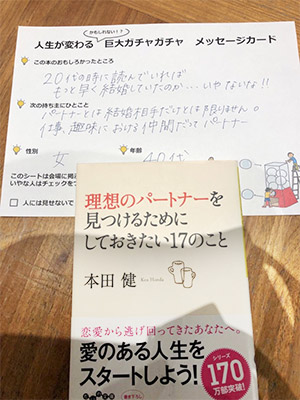 かもしれない!?
人生が変わる 巨大ガチャガチャ メッセージカード
この本のおもしろかったところ
20代の時に読んでいれば
もっと早く結婚していたのか…いやないな!!
次の持ち主にひとこと
パートナーとは結婚相手だけとは限りません。
仕事、趣味における仲間だってパートナー
性別
年齢
女
40代
このシートは会場に掲
いやな人はチェックをつ
人には見せないで
理想のパートナーを
見つけるために
しておきたい17のこと
本田 健
Ken Honda
恋愛から逃げ回ってきたあなたへ。
愛のある人生を
スタートしよう!
シリーズ
170
万部突破!
だいわ文庫
書き下ろし